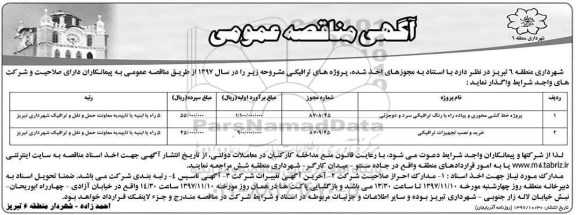 آگهی مناقصه عمومی
شهرداری منطقه ۶
شهرداری منطقه ۶ تبریز در نظر دارد با استناد به مجوزهای اخذ شده، پروژه های ترافیکی مشروحه زیر را در سال ۱۳۹۷ از طریق مناقصه عمومی به پیمانکاران دارای صلاحیت و شرکت
های واجد شرایط واگذار نماید:
ردیف نام پروژه شماره مجوز مبلغ برآورد اولیه(ریال) مبلغ سپرده(ریال) رتبه
۱ پروژه خط کشی محوری و پیاده راه با رنگ ترافیکی سرد و دوجزئی ۸۷۰۸/۴۵ ۵ راه یا ابنیه با تاییدیه معاونت حمل و نقل و ترافیک شهرداری تبریز
۲ خرید و نصب تجهیزات ترافیکی ۸۷۰۹/۴۵ ۵ راه یا ابنیه با تاییدیه معاونت حمل و نقل و ترافیک شهرداری تبریز
لذا از شرکتها و پیمانکاران واجد شرایط دعوت می شود، با رعایت قانون منع مداخله کارکنان در معاملات دولتی، از تاریخ انتشار آگهی جهت اخذ اسناد مناقصه به سایت اینترنتی
www.m6.tabriz.ir یا به امور قراردادهای منطقه واقع در جاده سنتو - میدان کارگر - شهرداری منطقه شش مراجعه نمایند.
مدارک مورد نیاز جهت اخذ اسناد : ۱- مدارک احراز صلاحیت شرکت ۲- آخرین آگهی تغییرات شرکت ۳- آگهی تاسیس ۴- رتبه بندی شرکت می باشد. ضمنا تحویل اسناد به
دبیرخانه منطقه روز چهارشنبه مورخه ۱۳۹۷/۱۱/۱۰ تا ساعت ۱۳/۳۰ می باشد و بازگشایی پاکت ها در همان روز مورخه ۱۳۹۷/۱۱/۱۰ ساعت ۱۴/۳۰ واقع در خیابان آزادی - چهارراه ابوریحان-
نبش خیابان لاله زار جنوبی - شهرداری تبریز بوده و سایر اطلاعات و جزئیات مربوطه در اسناد و شرایط شرکت در مناقصه مندرج و جزء لاینفک قرارداد خواهد بود.
احمد زاده - شهردار منطقه ۶ تبریز
ParsNamadData